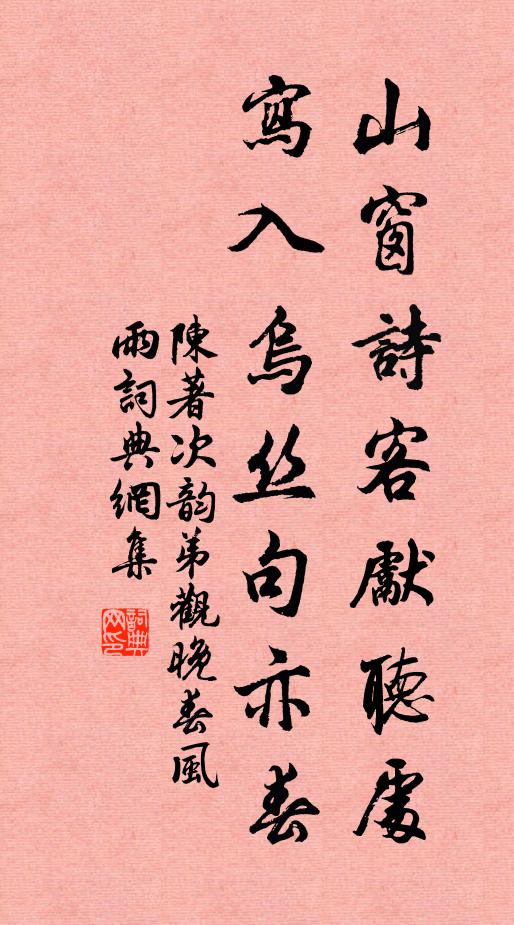 山窗詩客獻聽處
寫入烏丝句亦春
陳著次韵弟觀晚春風
雨詞典網集
詞典
网印